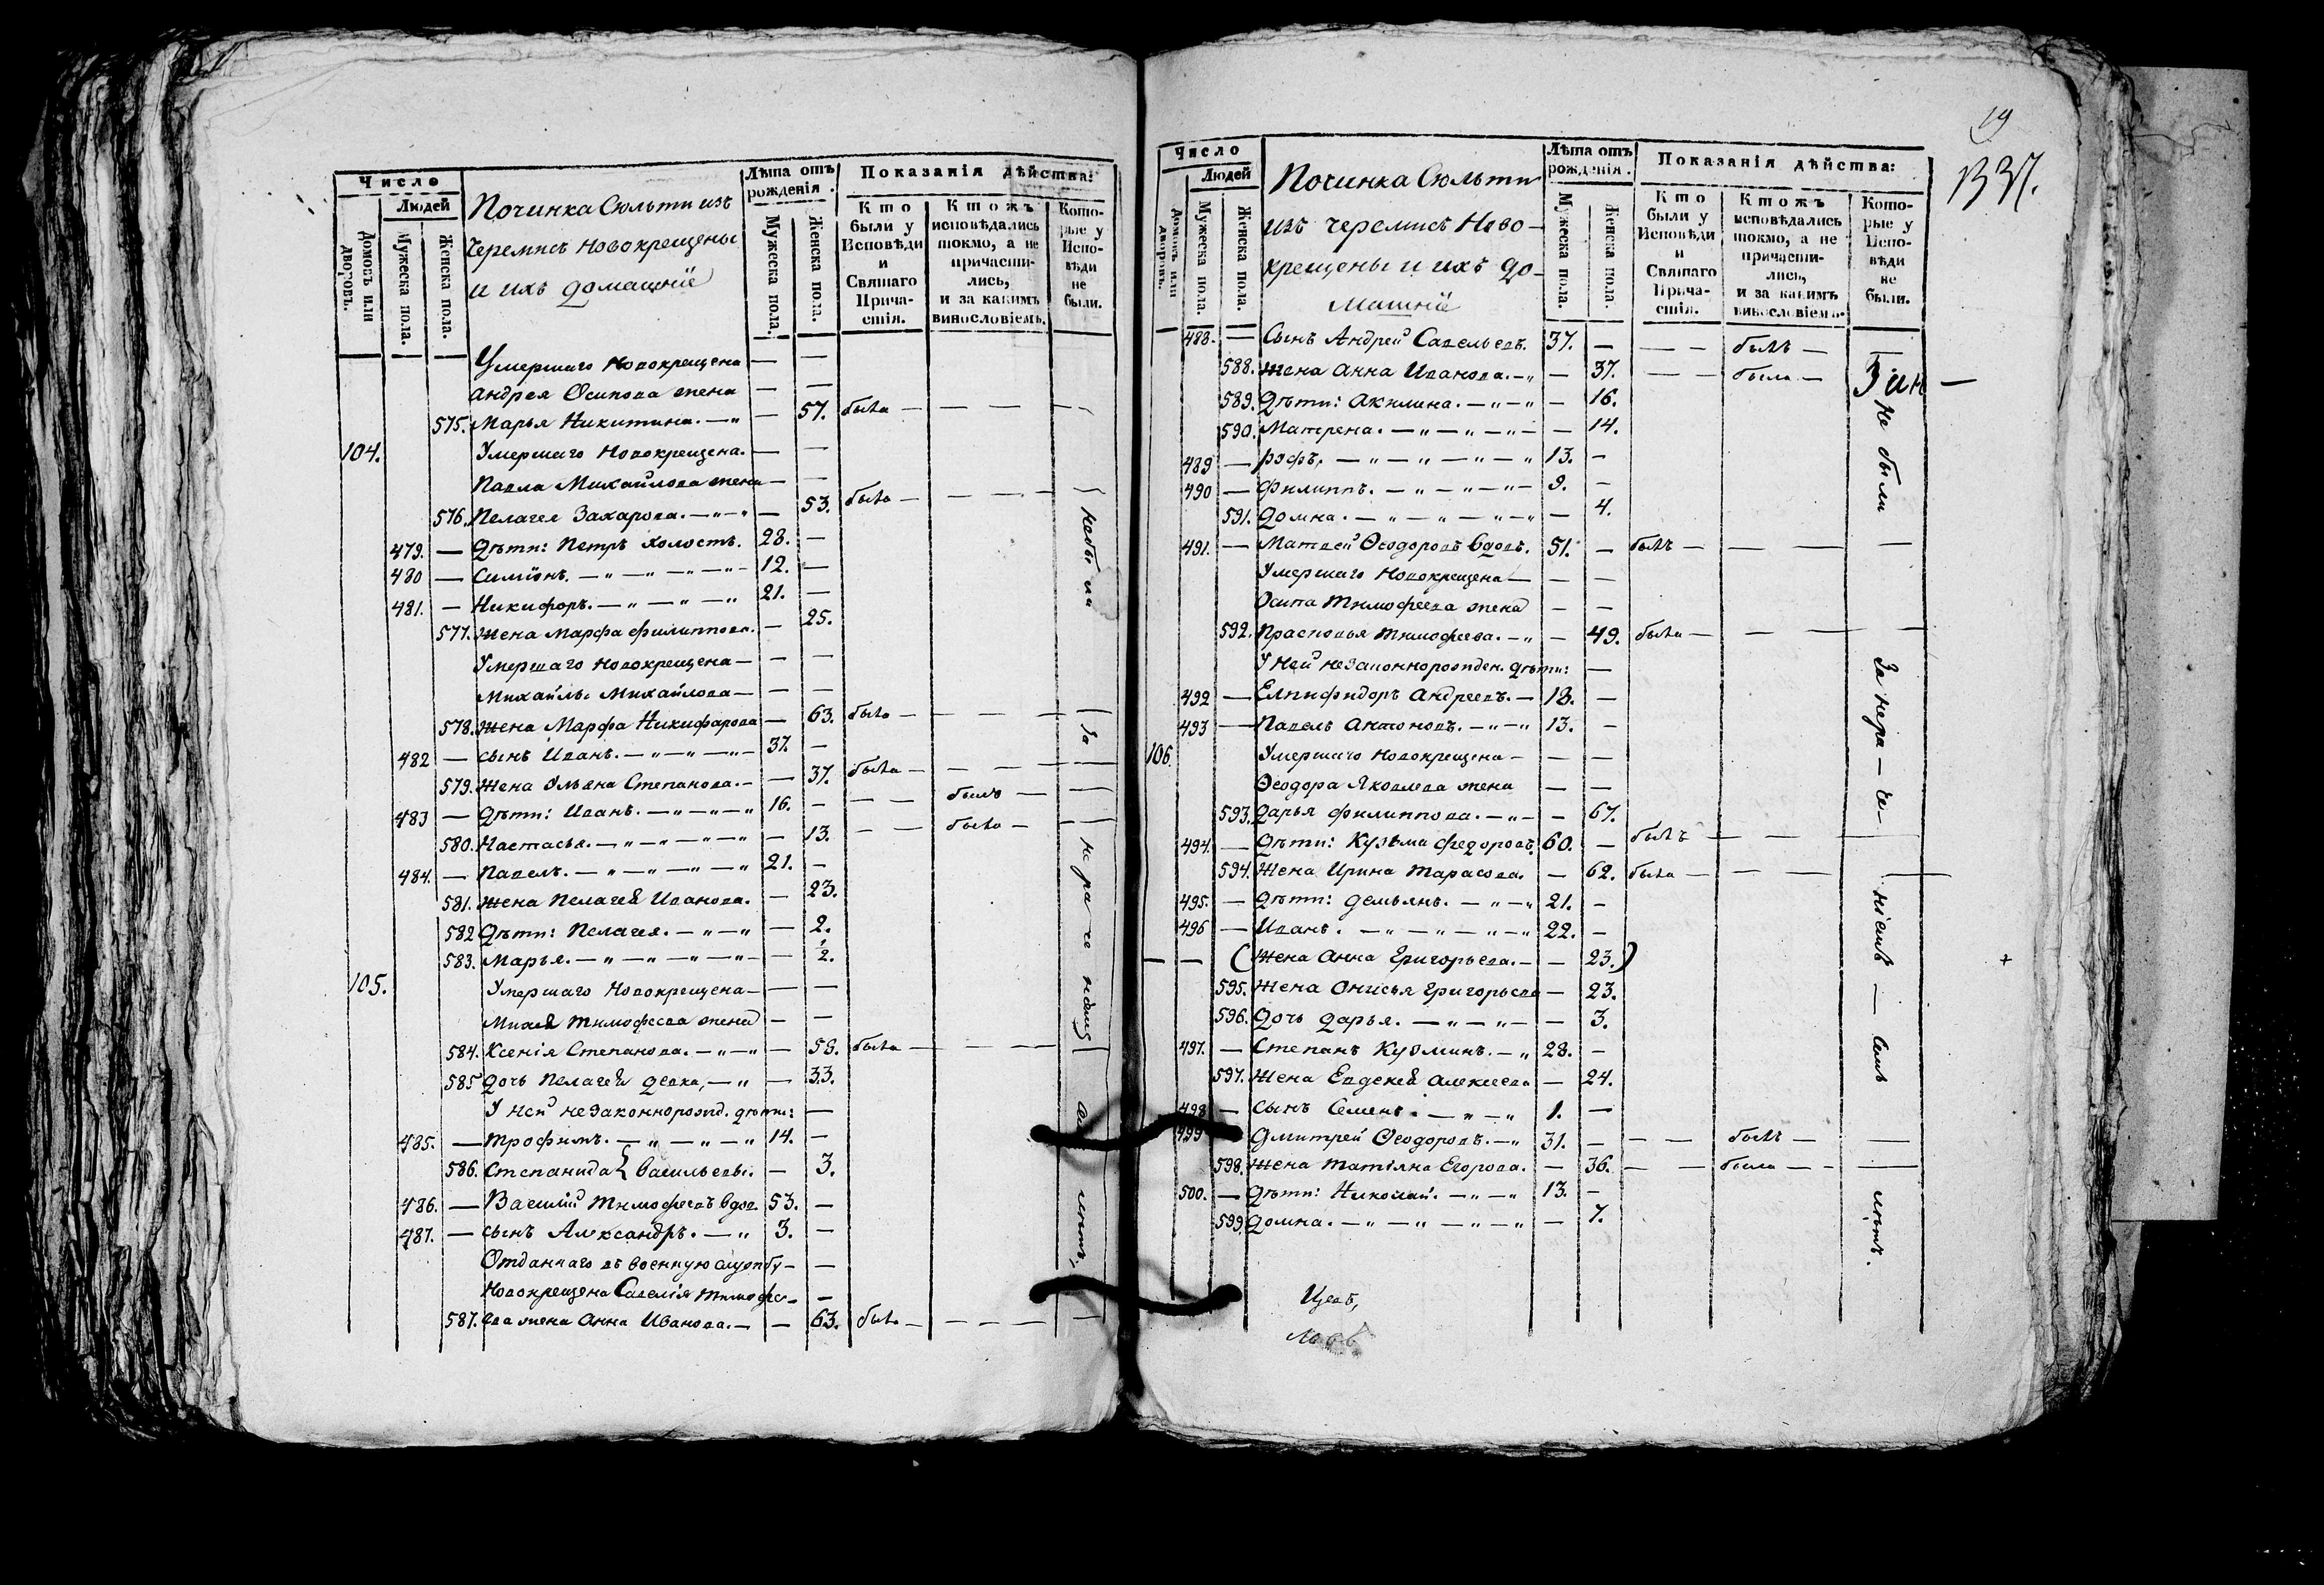 Число
Людей
Домовъ или дворовъ.
Мужеска пола.
Женска пола.
Починка Сюльти изъ
Черемисъ Новокрещены
и ихъ домашніе
Лѣта отъ рожденія.
Мужеска пола.
Женска пола.
Показанія дѣйства:
Кто были у Исповѣди и Святаго Причастія.
Ктожъ исповѣдались токмо, а не причастились, и за какимъ винословіемъ.
Которые у Исповѣди не были.
Умершаго Новокрещена — —
Андрея Осипова жена — —
575. Марья Никитина. — 57. была — — — —
104. Умершаго Новокрещена. — —
Павла Михайлова жена — —
576. Пелагея Захарова. — 53. была — — — —
479. — Дѣти: Петръ холостъ. 28. —
480 — Симіонъ. — 12. —
481. — Никифоръ. — 21. —
577. Жена Марфа Филиппова. — 25.
Умершаго Новокрещена — — —
Михайлы Михайлова — — —
578. Жена Марфа Никифарова — 63. была — — — —
482 — сынъ Иванъ. — 37. —
579. Жена Ульяна Степанова. — 37. была — — — —
483 — Дѣти: Иванъ. — 16. — — — былъ — —
580. Настасья. — 13. — — была — —
484. — Павелъ. — 21. —
581. Жена Пелагея Иванова. — 23.
582 Дѣти: Пелагея. — 2.
583. Марья. — 1/2.
105. Умершаго Новокрещена — — —
Михея Тимофеева жена — —
584. Ксенія Степанова. — 58. была — — — —
585 Дочь Пелагея девка, — 33.
У ней незаконнорожд. дѣти: —
485. — Трофимъ. — 14. —
586. Степанида } Васильевы. — 3.
486. — Василій Тимофеевъ вдов. 53. —
487. — сынъ Александръ. — 3. —
Отданнаго въ военную службу — —
Новокрещена Савелія Тимофе- —
587. ева жена Анна Иванова. — 63. была — — — —
Не были
За
не ра че
лѣтъ
19
Число
Людей
Домовъ или дворовъ.
Мужеска пола.
Женска пола.
Починка Сюльти
изъ черемисъ Ново-
крещены и ихъ до-
машніе
Лѣта отъ рожденія.
Мужеска пола.
Женска пола.
Показанія дѣйства:
Кто были у Исповѣди и Святаго Причастія.
Ктожъ исповѣдались токмо, а не причастились, и за какимъ винословіемъ.
Которые у Исповѣди не были.
488. — Сынъ Андрей Савельевъ. 37. — — — былъ —
588. Жена Анна Иванова. — 37. — — была —
589. Дѣти: Акилина. — 16.
590. Матрена. — 14.
489 — — 13. —
490 — Филиппъ. — 9. —
591. Домна. — 4.
491. — Матвей Ѳеодоровъ вдовъ. 51. — былъ — — — —
Умершаго Новокрещена — — —
Осипа Тимофеева жена — —
592. Прасковья Тимофеева. — 49. была — — — —
У ней незаконнорожден. дѣти: —
492 — Елпифидоръ Андреевъ. — 18. —
493 — Павелъ Антоновъ. — 13. —
106. Умершаго Новокрещена — — —
Ѳеодора Яковлева жена — —
593. Дарья Филиппова. — 67.
494. — Дѣти: Кузьма Федоровъ. 60. — былъ — — —
594. Жена Ирина Тарасова. — 62. была — — — —
495. — Дѣти: Демьянъ. — 21. —
496 — Иванъ. — 22. —
— — (Жена Анна Григорьева. — 23.)
595. Жена Онисья Григорьева — 23.
596. Дочь Дарья. — 3.
497. — Степанъ Кузминъ. — 28. —
597. Жена Евдокея Алексеева — 24.
498 — Сынъ Семенъ. — 1. —
499 Дмитрей Ѳеодоровъ. — 31. — — — былъ — —
598. Жена Татіяна Егорова. — 36. — — была — —
500. — Дѣти: Николай. — 13. —
599. Домна. — 7.
Не были
За нера — че
ніемъ —
лѣтъ.